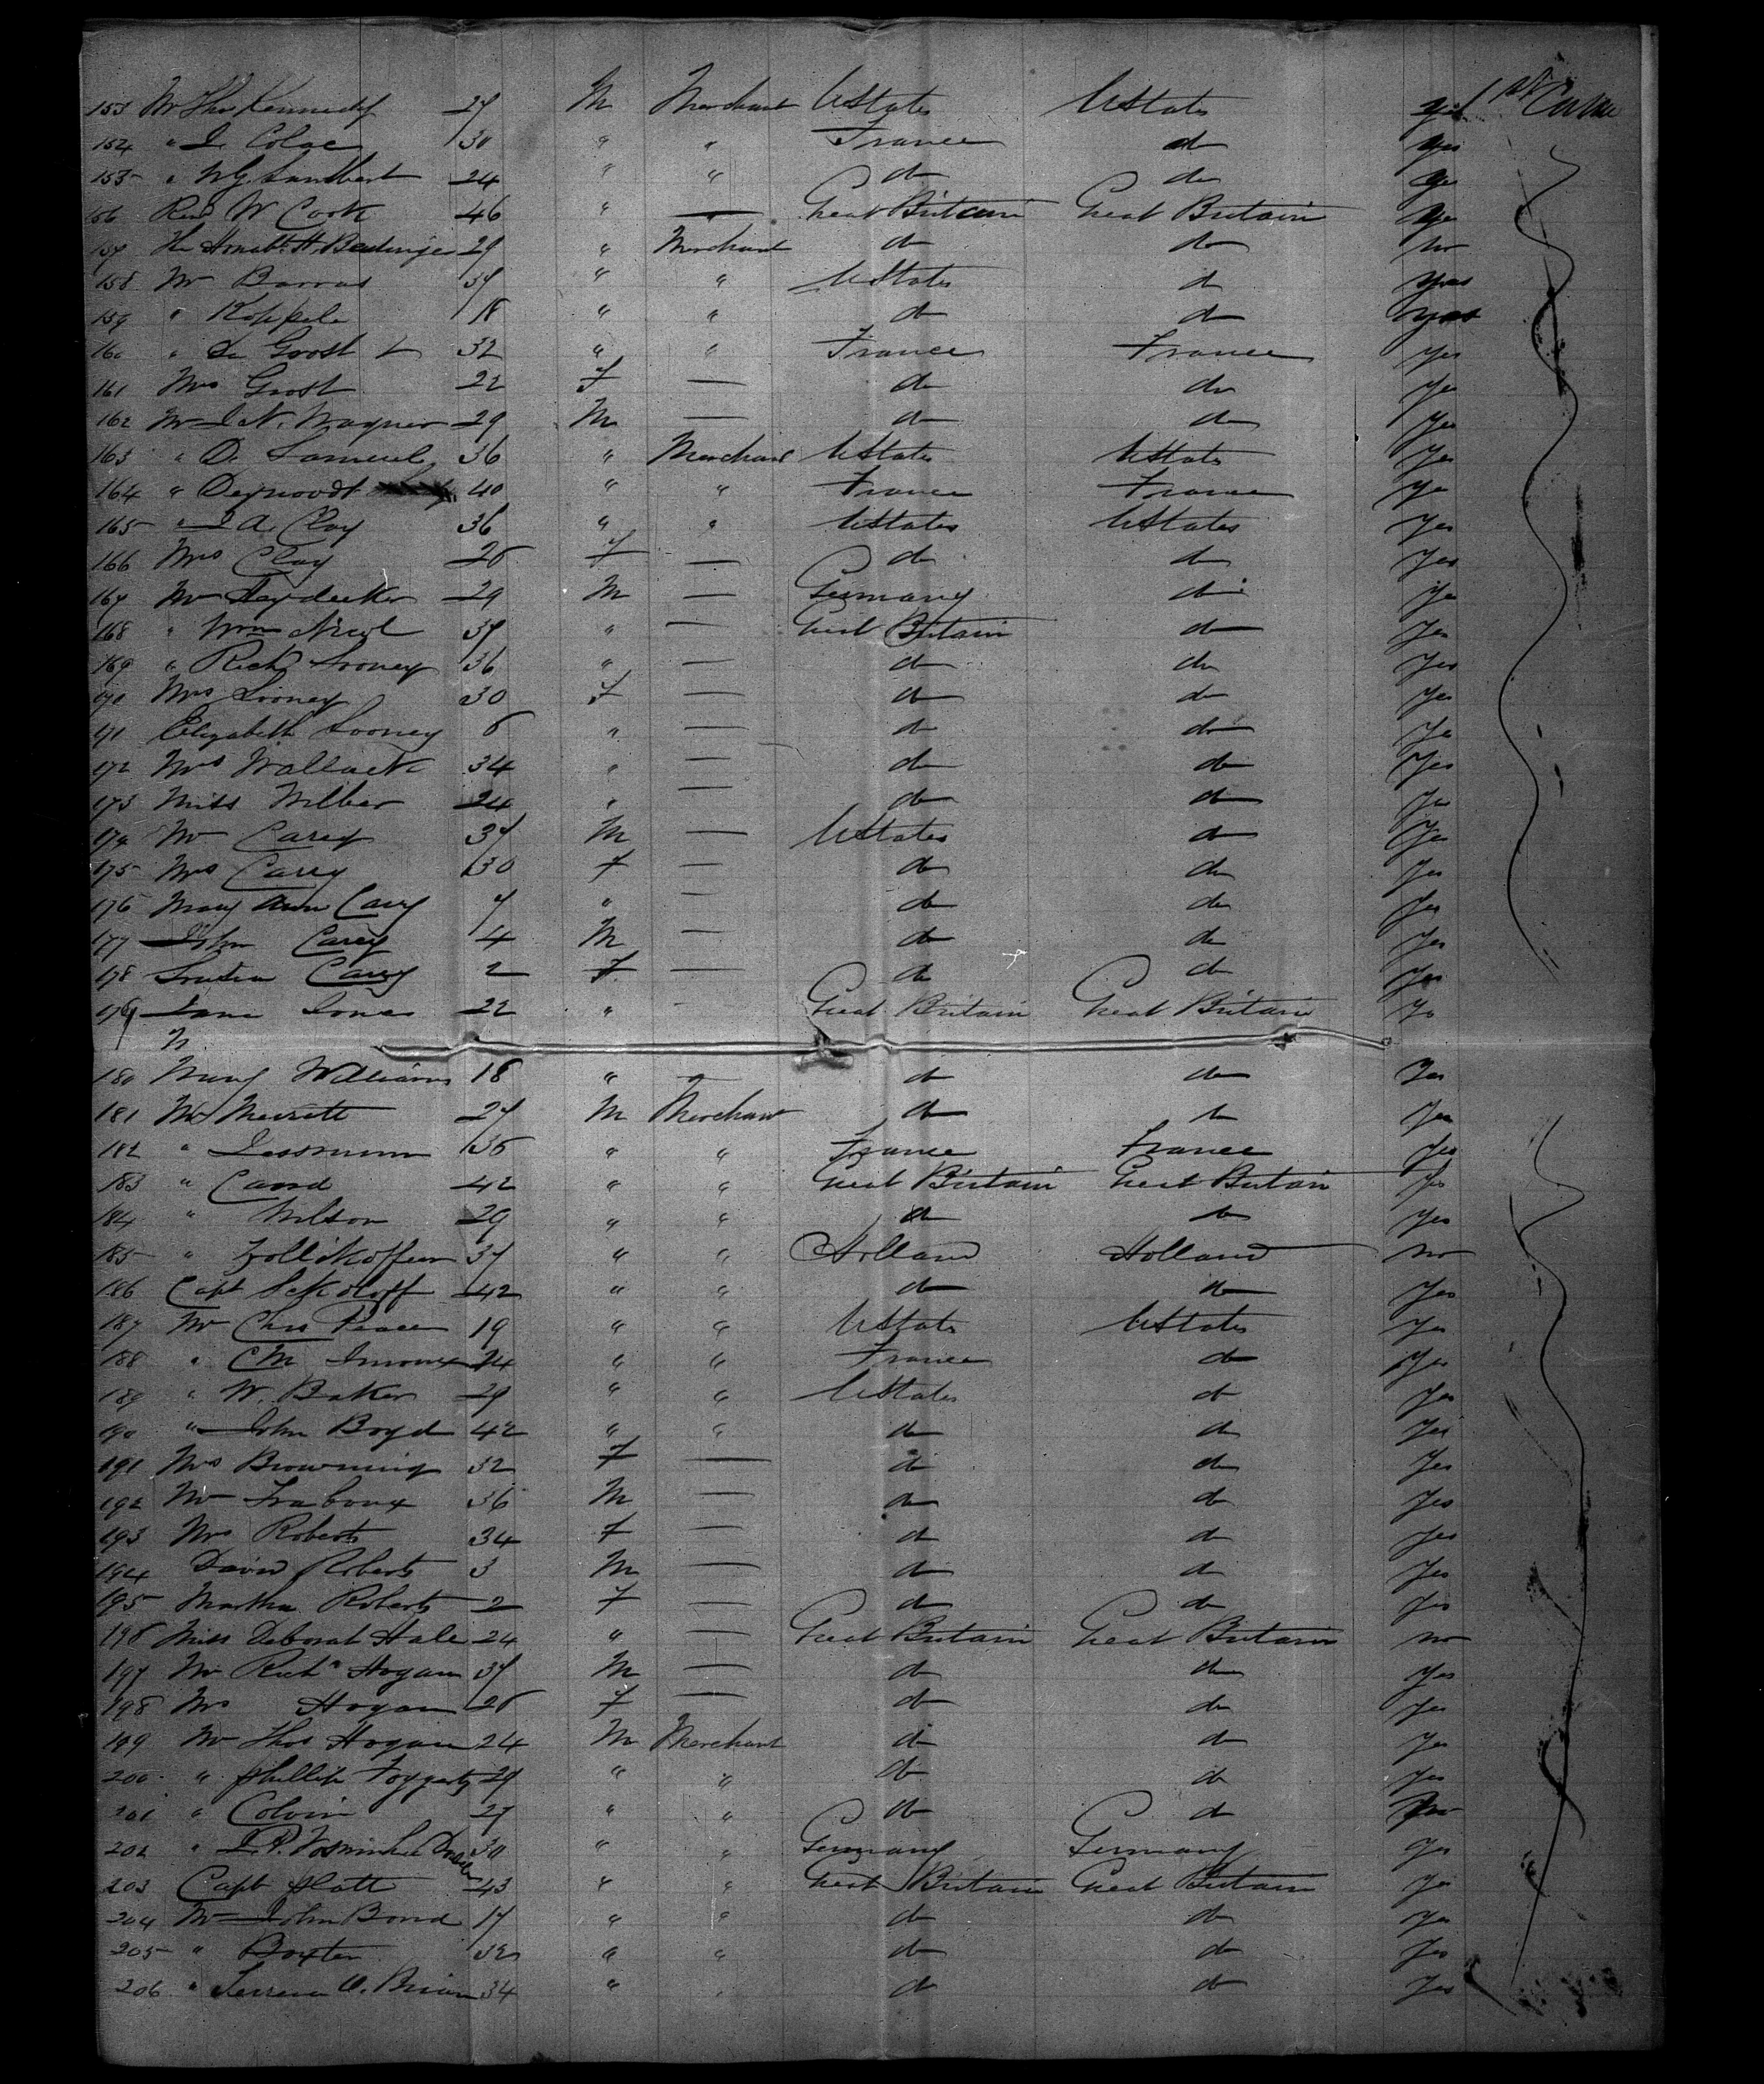 153 Mr Thos Kennedy 27 M Merchant UStates UStates yes 1st Cabin
154 " J. Colac 30 " " France do yes
155 " W G. Lambert 24 " " do do yes
156 Revd W Cook 46 " — Great Britain Great Britain yes
157 The Honable. H. 29 " Merchant do do no
158 Mr Barras 37 " " UStates do yes
159 " Koppele 18 " " do do yes
160 " De Groost 32 " " France France yes
161 Mrs Groost 22 F — do do yes
162 Mr J N. Wagner 29 M — do do yes
163 " D. Samuel 36 " Merchant UStates UStates yes
164 " Deynoodt 40 " " France France yes
165 " J A. Clay 36 " " UStates UStates yes
166 Mrs Clay 26 F — do do yes
167 Mr Haydecker 29 M — Germany do yes
168 " Wm Nicol 37 " — Great Britain do yes
169 " Richd Looney 36 " — do do yes
170 Mrs Looney 30 F — do do yes
171 Elizabeth Looney 6 " — do do yes
172 Mrs Wallack 34 " — do do yes
173 Miss Wilber 24 " — do do yes
174 Mr Carey 37 M — UStates do yes
175 Mrs Carey 30 F — do do yes
176 Mary Ann Carey 7 " — do do yes
177 John Carey 4 M — do do yes
178 Carey 2 F — do do yes
179 Jane Jones 22 " - Great Britain Great Britain yes
180 Mary Williams 18 " — do do yes
181 Mr Merrett 27 M Merchant do do yes
182 " 36 " " France France yes
183 " Carrd 42 " " Great Britain Great Britain yes
184 " Wilson 29 " " do do yes
185 " Zollikoffer 37 " " Holland Holland no
186 Capt Sckoloff 42 " " do do yes
187 Mr Chas Peace 19 " " UStates UStates yes
188 " C M 24 " " France do yes
189 " W. Baker 29 " " UStates do yes
190 " John Boyd 42 " " do do yes
191 Mrs Browning 32 F — do do yes
192 Mr Fraboux 36 M — do do yes
193 Mrs Roberts 34 F — do do yes
194 David Roberts 3 M — do do yes
195 Martha Roberts 2 F — do do yes
196 Miss Deborah Hale 24 " — Great Britain Great Britain no
197 Mr Richd Hogan 37 M — do do yes
198 Mrs Hogan 26 F — do do yes
199 Mr Thos Hogan 24 M Merchant do do yes
200 " Phillip Foggerty 29 " " do do yes
201 " Colvin 27 " " do do
202 " J. P. 30 " " Germany Germany yes
203 Capt Hatt 43 " " Great Britain Great Britain yes
204 Mr John Bond 17 " " do do yes
205 " Baxter 32 " " do do yes
206 " Terrence O. Brian 34 " " do do yes